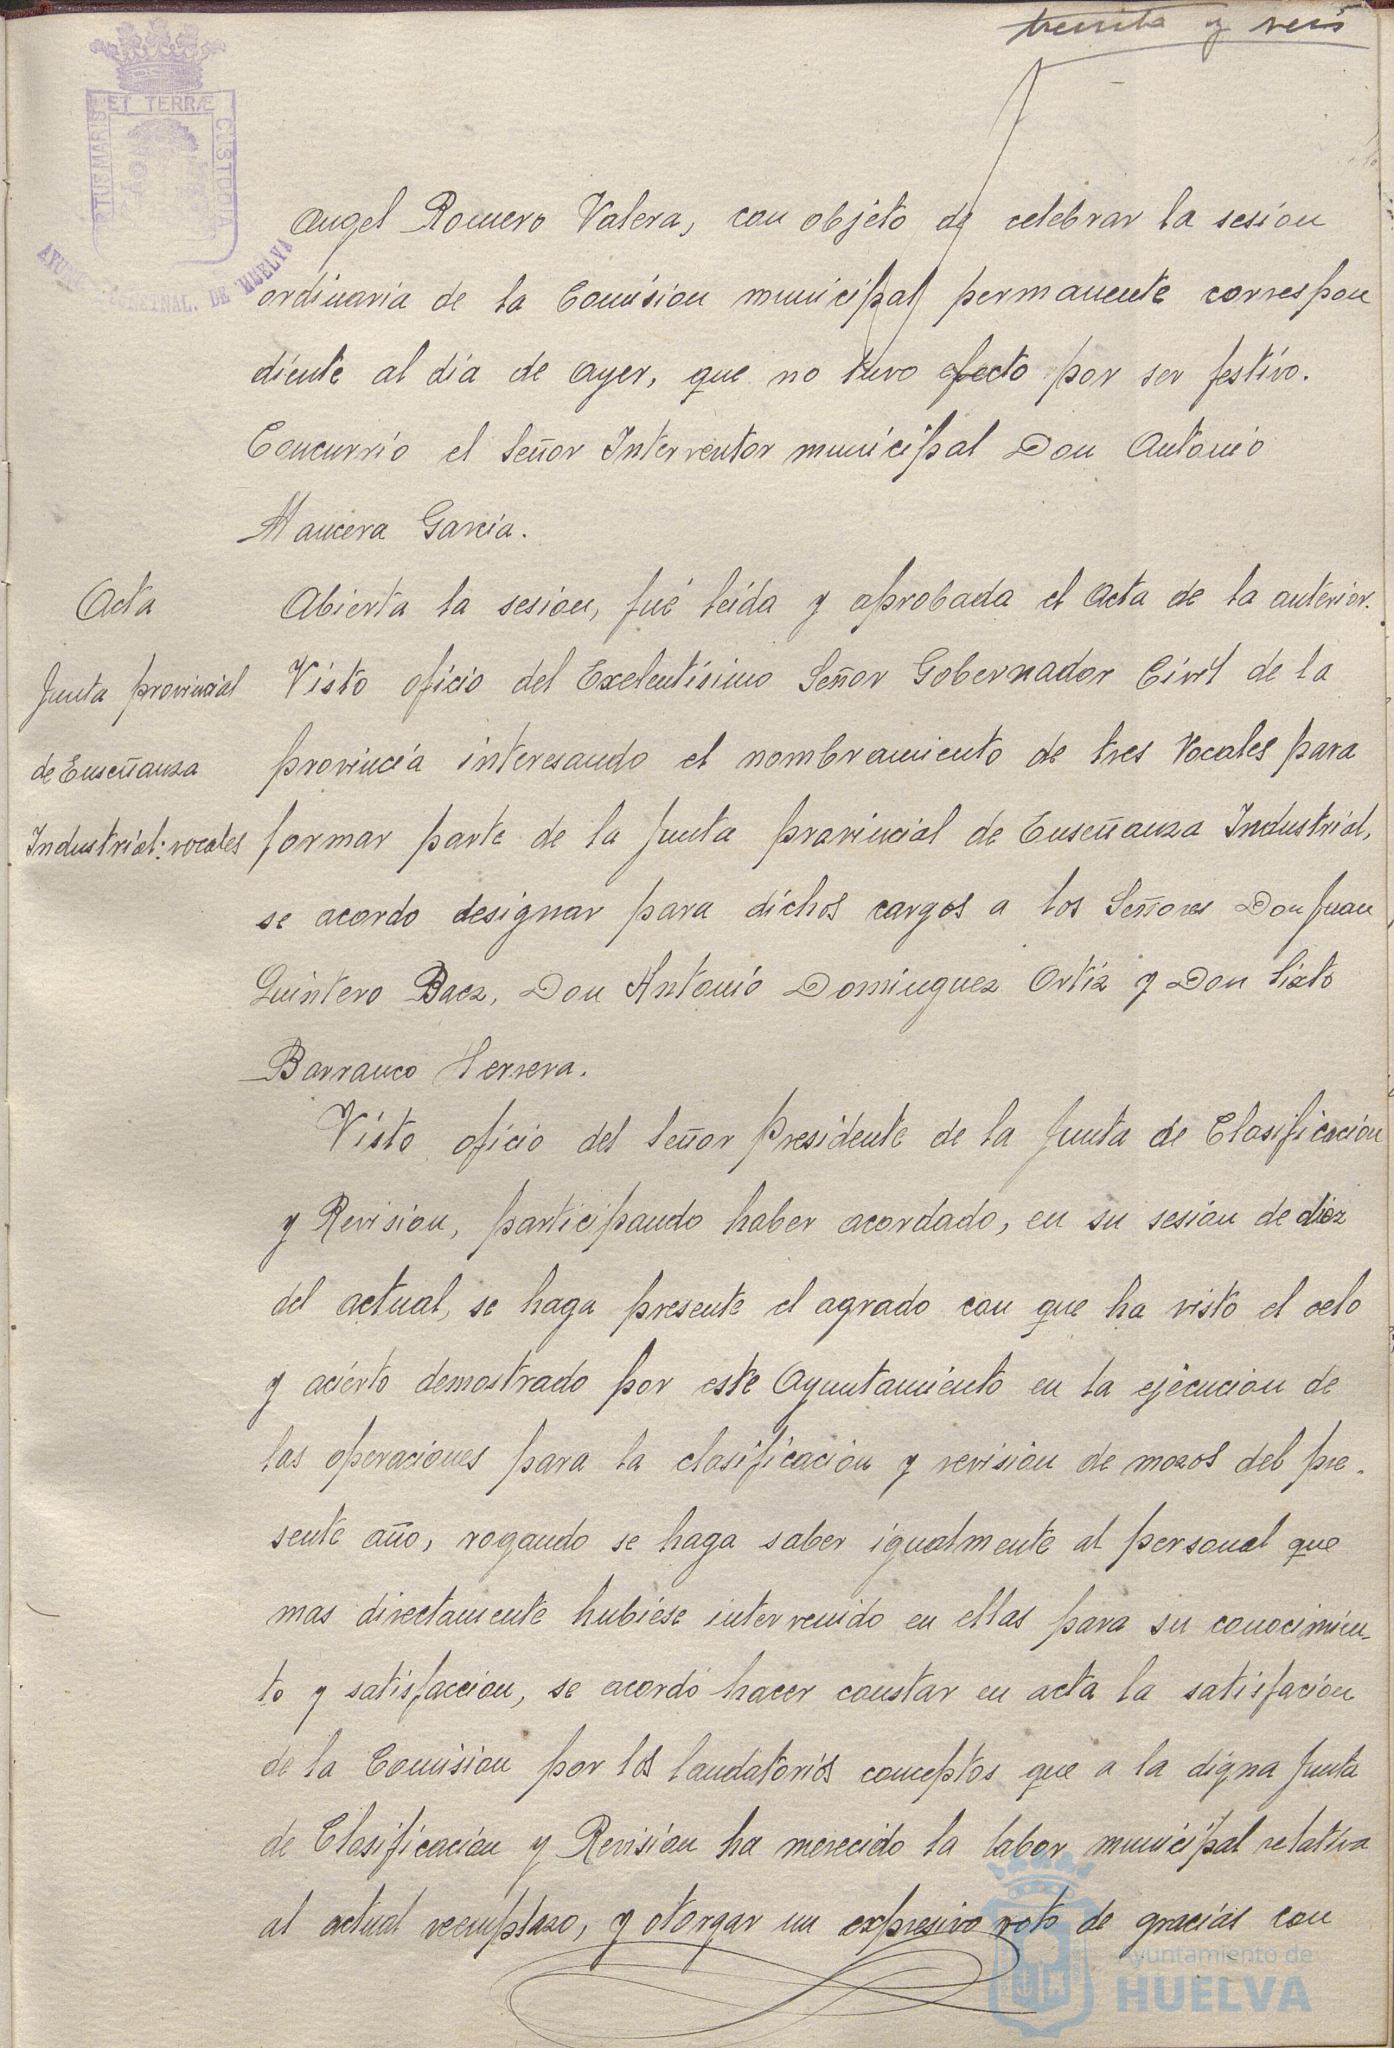 treinta y seis
PORTUS MARIS ET TERRÆ CUSTODIA
DE HUELVA
Angel Romero Valera, con objeto de celebrar la sesion
ordinaria de la Comision municipal permanente correspon
diente al dia de ayer, que no tuvo efecto por ser festivo.
Concurrio el Señor Interventor municipal Don Antonio
Mancera Garcia.
Acta
Abierta la sesion, fué leida y aprobada el Acta de la anterior.
Junta provincial
de Enseñanza
Industrial: vocales
Visto oficio del Exelentisimo Señor Gobernador Civil de la
provincia interesando el nombramiento de tres Vocales para
formar parte de la Junta provincial de Enseñanza Industrial,
se acordo designar para dichos cargos a los Señores Don Juan
Quintero Baez, Don Antonio Dominguez Ortiz y Don Sixto
Barranco Herrera.
Visto oficio del Señor Presidente de la Junta de Clasificacion
y Revision, participando haber acordado, en su sesion de diez
del actual, se haga presente el agrado con que ha visto el celo
y acierto demostrado por este Ayuntamiento en la ejecucion de
las operaciones para la clasificacion y revision de mozos del pre-
sente año, rogando se haga saber igualmente al personal que
mas directamente hubiese intervenido en ellas para su conocimien-
to y satisfaccion, se acordó hacer constar en acta la satisfacion
de la Comision por los laudatorios conceptos que a la digna Junta
de Clasificacion y Revision ha merecido la labor municipal relativa
al actual reemplazo, y otorgar un expresivo voto de gracias con
Ayuntamiento de
HUELVA